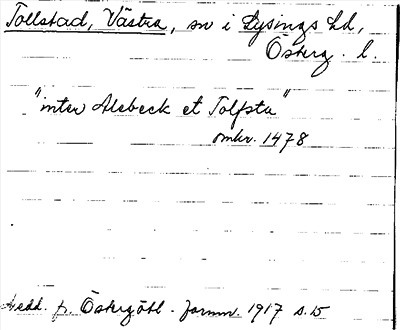 Tollstad, Västra, sn i Lysings hd,
Österg. l.
"inter Alebeck et Tolfsta"
omkr. 1478
Medd. fr. Östergötl. fornm. 1917 s. 15